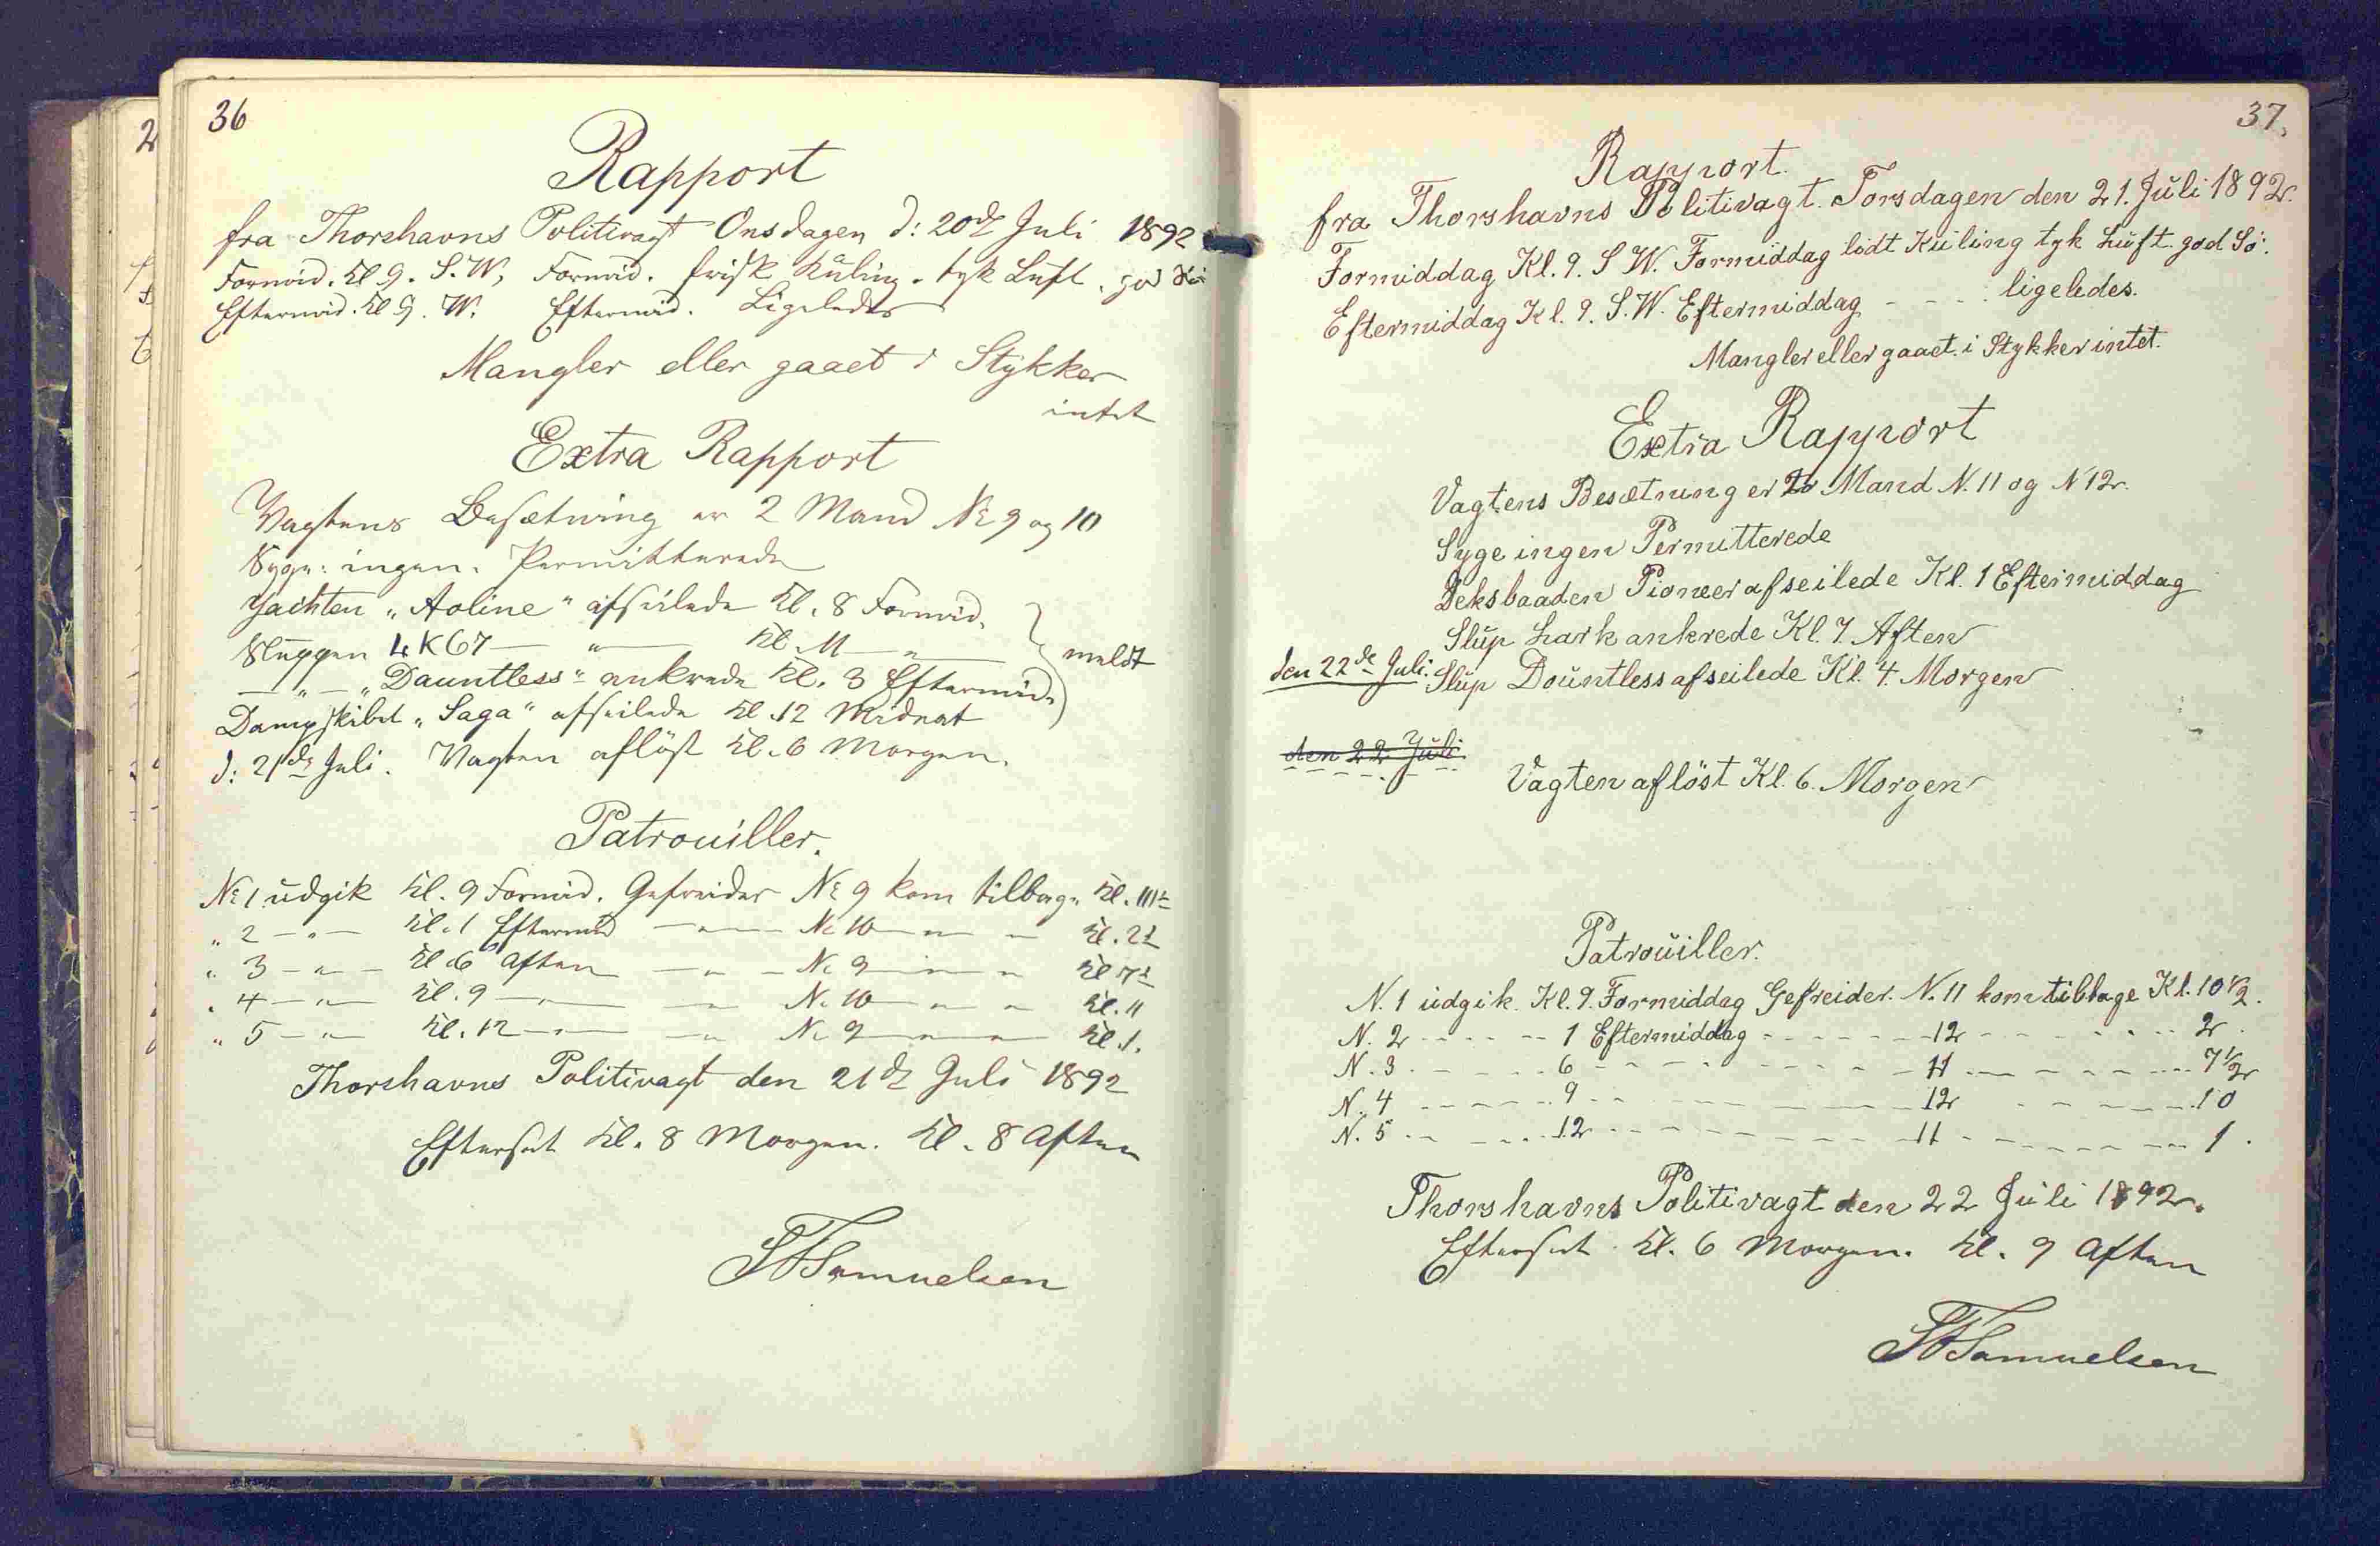 36
Rapport
fra Thorshavns Politivagt Onsdagen d: 20de Juli 1892
Formid. Kl 9. S.W, Formid. frisk Kuling. tyk Luft. god
Eftermid. Kl 9. W. Eftermid. Ligeledes
Mangler eller gaaet i Stykker
intet
Extra Rapport
Vagtens Besætning er 2 Mand No 9 og 10
Syge: ingen. Permitterede
Jachten „Aoline“ afseilede Kl. 8 Formid.
Sluppen LK67 — „ — Kl. 11 — „ —
— „ — „Dauntless“ ankrede Kl. 3 Eftermid. } meldt
Dampskibet „Saga“ afseilede Kl. 12 Midnat
d: 21de Juli. Vagten aflöst Kl. 6 Morgen.
Patrouiller.
No 1 udgik Kl. 9 Formid. Gefreider No 9 kom tilbage Kl.
„ 2 — „ — Kl. 1 Eftermid — „ — No 10 — „ — „ — Kl. 2½
„ 3 — „ — Kl 6 Aften — „ — No 9 — „ — „ Kl 7½
„ 4 — „ — Kl. 9 — „ — „ — No 10 — „ — „ — Kl. 11
„ 5 — „ — Kl. 12 — „ — „ — No 9 — „ — „ — Kl 1.
Thorshavns Politivagt den 21de Juli 1892
Efterset Kl. 8 Morgen. Kl. 8 Aften
Samuelsen
37.
Rapport.
fra Thorshavns Politivagt. Torsdagen den 21. Juli 1892.
Formiddag Kl. 9. S W. Formiddag lödt Kuling tyk Luft. god Sö.
Eftermiddag Kl. 9. S.W. Eftermiddag - - - - ligeledes.
Mangler eller gaaet i Stykker intet.
Extra Rapport
Vagtens Besætning er 2 Mand N. 11 og N 12.
Syge ingen Permitterede
Deksbaaden Pioneer afseilede Kl. 1 Eftermiddag
Slup Lark ankrede Kl. 7 Aften
den 22de Juli. Slup Dountless afseilede Kl. 4. Morgen
den 22 Juli
Vagten aflöst Kl. 6. Morgen
Patrouiller.
N. 1 udgik. Kl. 9. Formiddag Gefreider. N. 11 kom tilbage Kl. 10 1/2.
N. 2 - - - - - 1 Eftermiddag - - - - - - 12 - - - - - - 2.
N. 3 - - - - - 6 - - - - - - - - - 11 - - - - - - 7 1/2
N. 4 - - - - - 9 - - - - - - - - - 12 - - - - - - 10
N. 5 - - - - - 12 - - - - - - - - - 11 - - - - - - 1.
Thorshavns Politivagt den 22 Juli 1892.
Efterset Kl. 6 Morgen. Kl. 9 Aften
Samuelsen